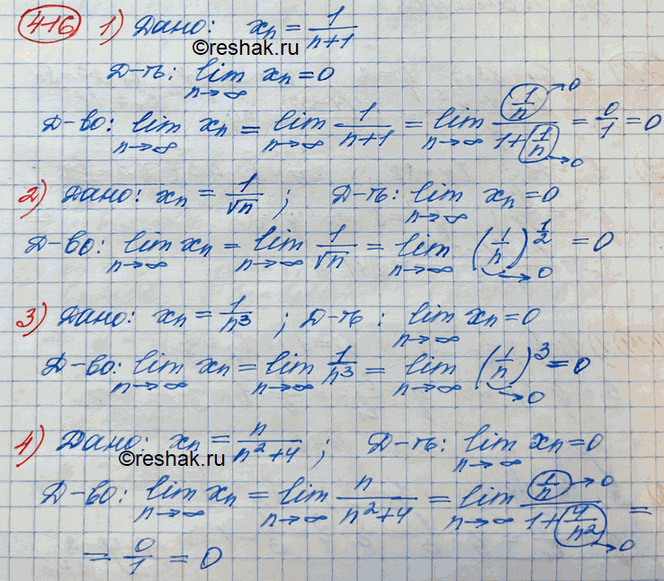 416 1) Дано: xₙ = 1/(n+1)
©reshak.ru
Д-ть: lim n→∞ xₙ = 0
Д-во: lim n→∞ xₙ = lim n→∞ 1/(n+1) = lim n→∞ (1/n →0)/(1+1/n →0) = 0/1 = 0
2) Дано: xₙ = 1/√n ; Д-ть: lim n→∞ xₙ = 0
Д-во: lim n→∞ xₙ = lim n→∞ 1/√n = lim n→∞ (1/n →0)^(1/2) = 0
3) Дано: xₙ = 1/n³ ; Д-ть: lim n→∞ xₙ = 0
Д-во: lim n→∞ xₙ = lim n→∞ 1/n³ = lim n→∞ (1/n →0)³ = 0
4) Дано: xₙ = n/(n²+4) ; Д-ть: lim n→∞ xₙ = 0
©reshak.ru
Д-во: lim n→∞ xₙ = lim n→∞ n/(n²+4) = lim n→∞ (1/n →0)/(1+4/n² →0) =
= 0/1 = 0